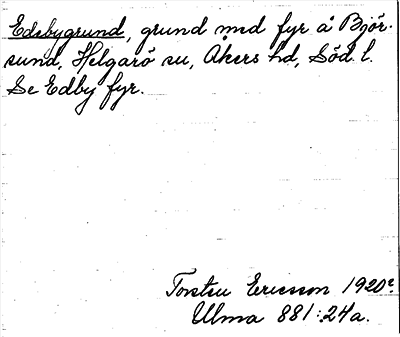 Edsbygrund, grund med fyr å Björ-
sund, Helgarö sn, Åkers hd, Söd. l.
Se Edby fyr.
Torsten Ericsson 1920?
Ulma 881:24a.